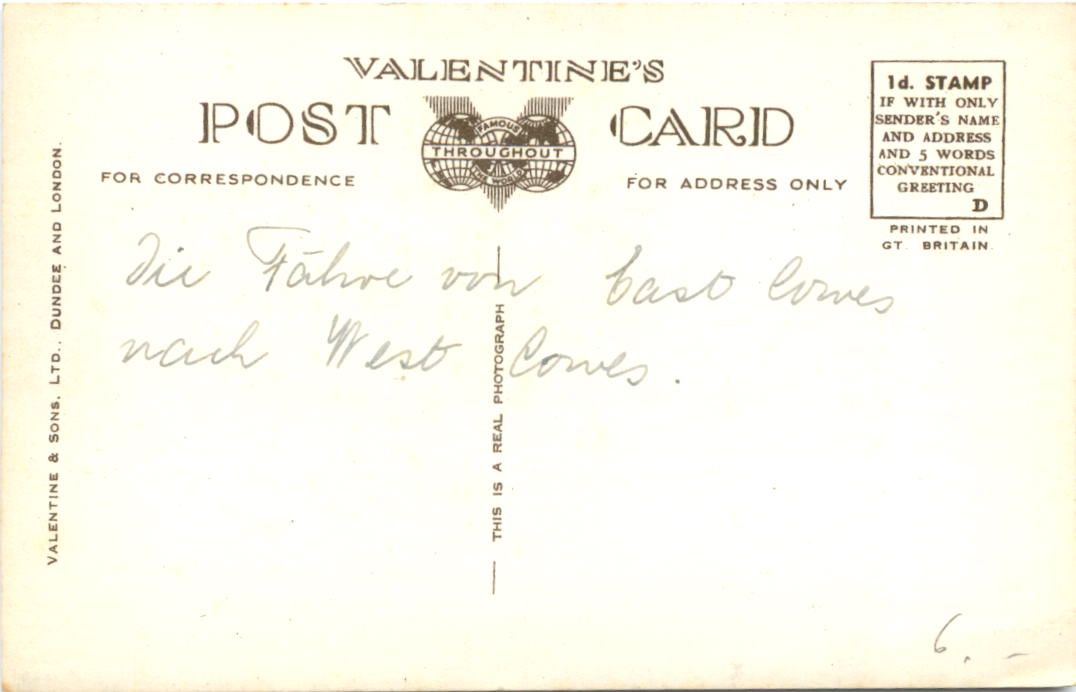 VALENTINE'S
POST CARD
FAMOUS
THROUGHOUT
THE WORLD
FOR CORRESPONDENCE
FOR ADDRESS ONLY
1d. STAMP
IF WITH ONLY
SENDER'S NAME
AND ADDRESS
AND 5 WORDS
CONVENTIONAL
GREETING
D
PRINTED IN
GT. BRITAIN.
VALENTINE & SONS, LTD., DUNDEE AND LONDON.
THIS IS A REAL PHOTOGRAPH
Die Fähre von East Cowes
nach West Cowes.
6.-